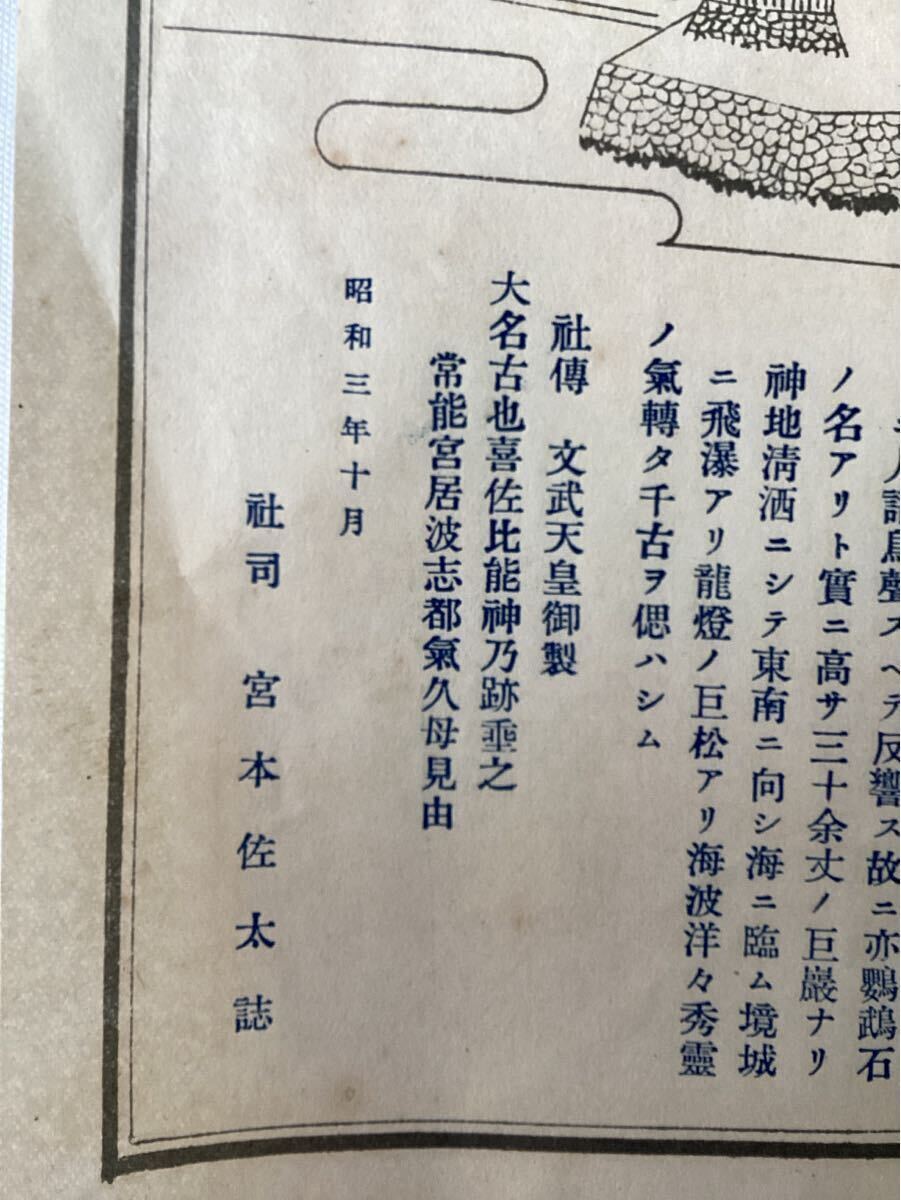 人語鳥聲スヘテ反響ス故ニ亦鸚鵡石
ノ名アリト實ニ高サ三十余丈ノ巨巖ナリ
神地淸洒ニシテ東南ニ向シ海ニ臨ム境城
ニ飛瀑アリ龍燈ノ巨松アリ海波洋々秀靈
ノ氣轉タ千古ヲ偲ハシム
社傳　文武天皇御製
大名古也喜佐比能神乃跡垂之
常能宮居波志都氣久母見由
昭和三年十月
社司　宮本佐太誌